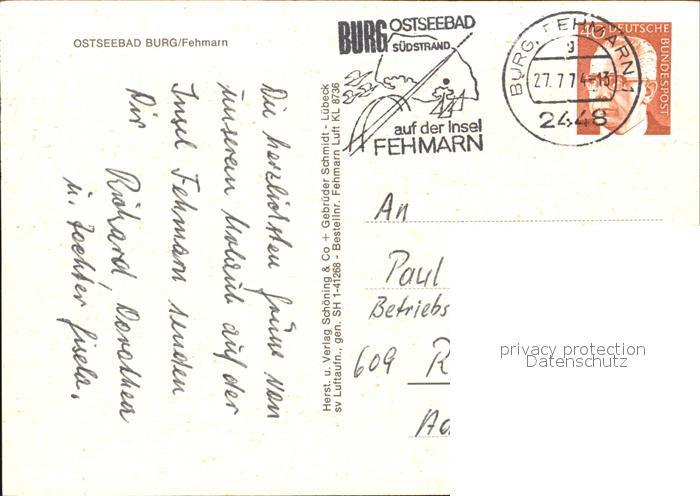 OSTSEEBAD BURG/Fehmarn
Die herzlichsten Grüsse von
unserem Urlaub auf der
Insel Fehmarn senden
Dir
Richard Dorothea
u. Tochter Gisela.
Herst. u. Verlag Schöning & Co + Gebrüder Schmidt - Lübeck
sv Luftaufn., gen. SH 1-41268 - Bestellnr. Fehmarn Luft KL 8736
BURG OSTSEEBAD
SÜDSTRAND
auf der Insel
FEHMARN
BURG, FEHMARN 1
g
27.7.74-13
2448
40 DEUTSCHE
BUNDESPOST
An
Paul
Betriebs
609 R
privacy protection
Datenschutz